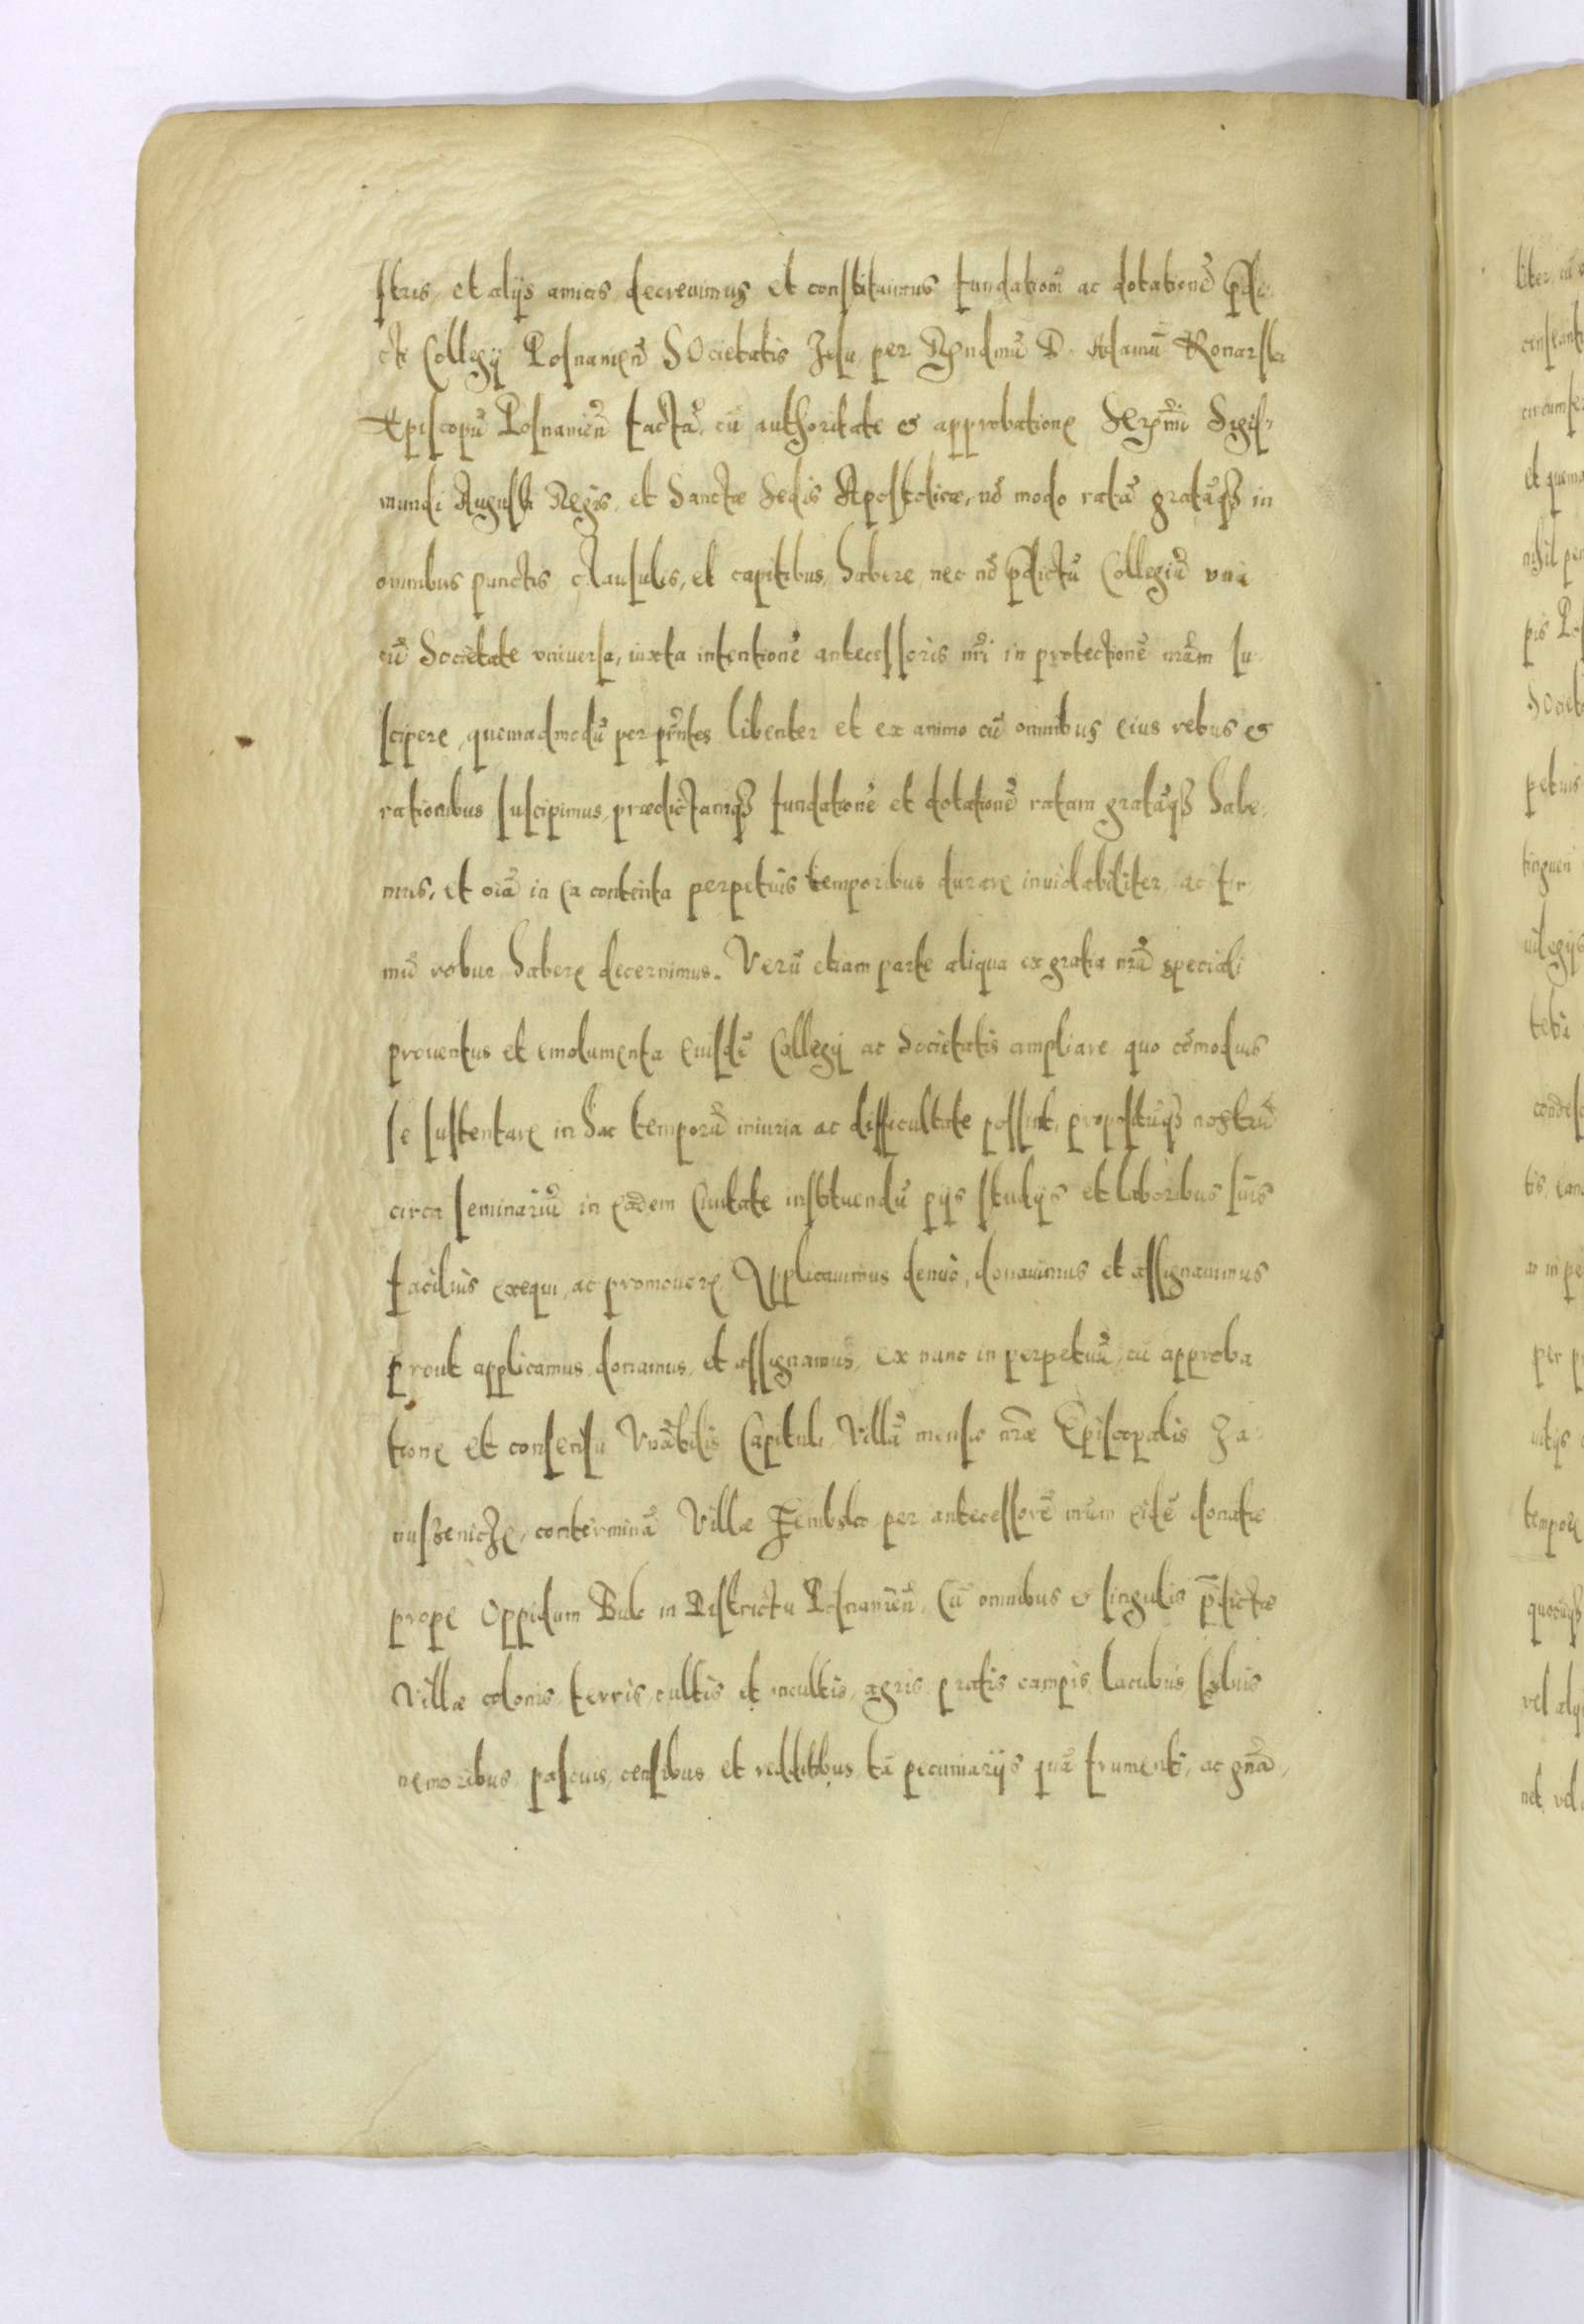 stris, et alijs amicis, decreuimus et constituimus fundationẽ ac dotationẽ p̃di-
cti Collegij Posnanien̄ SOcietatis Jesu per R̃ndmũ D. Adamũ Konarski
Episcopũ Posnanien̄ factã, cũ authoritate & approbatione Serm̃i Sigis-
mundi Augusti Regis, et Sanctæ Sedis Apostolicæ, nõ modo ratã gratãq3 in
omnibus punctis clausulis, et capitibus, habere, nec nõ p̃dictũ Collegiũ vna
cũ Societate vniuersa, iuxta intentionẽ antecessoris nr̃i in protectionẽ nr̃am su-
scipere, quemadmodũ per pñtes libenter et ex animo cũ omnibus eius rebus &
rationibus suscipimus, prædictamq3 fundationẽ et dotationẽ ratam gratãq3 habe-
mus, et oĩa in ea contenta perpetuis temporibus durare inuiolabiliter, ac fir-
mũ robur habere decernimus. Verũ etiam parte aliqua ex gratia nr̃a speciali
prouentus et emolumenta eiusdẽ Collegij ac Societatis ampliare quo cõmodius
se sustentare in hac temporũ iniuria ac difficultate possint, propositũq3 nostrũ
circa seminariũ in eadem Ciuitate instituendũ pijs studijs et laboribus suis
facilius exequi, ac promouere. Applicauimus denuò, donauimus et assignauimus
prout applicamus, donamus, et assignamus, ex nunc in perpetuũ, cũ approba
tione et consensu Vnãbilis Capituli, Villã mensæ nr̃æ Episcopalis Za-
conterminã Villæ per antecessorẽ nr̃um eidẽ donatæ
prope Oppidum Buk in Districtu Posnanien̄, Cũ omnibus & singulis p̃dictæ
Villæ colonis, terris, cultis et incultis, agris, pratis, campis, lacubus, syluis
nemoribus, pascuis, censibus, et redditibus, tã pecuniarijs quã frumenti, ac gñã-